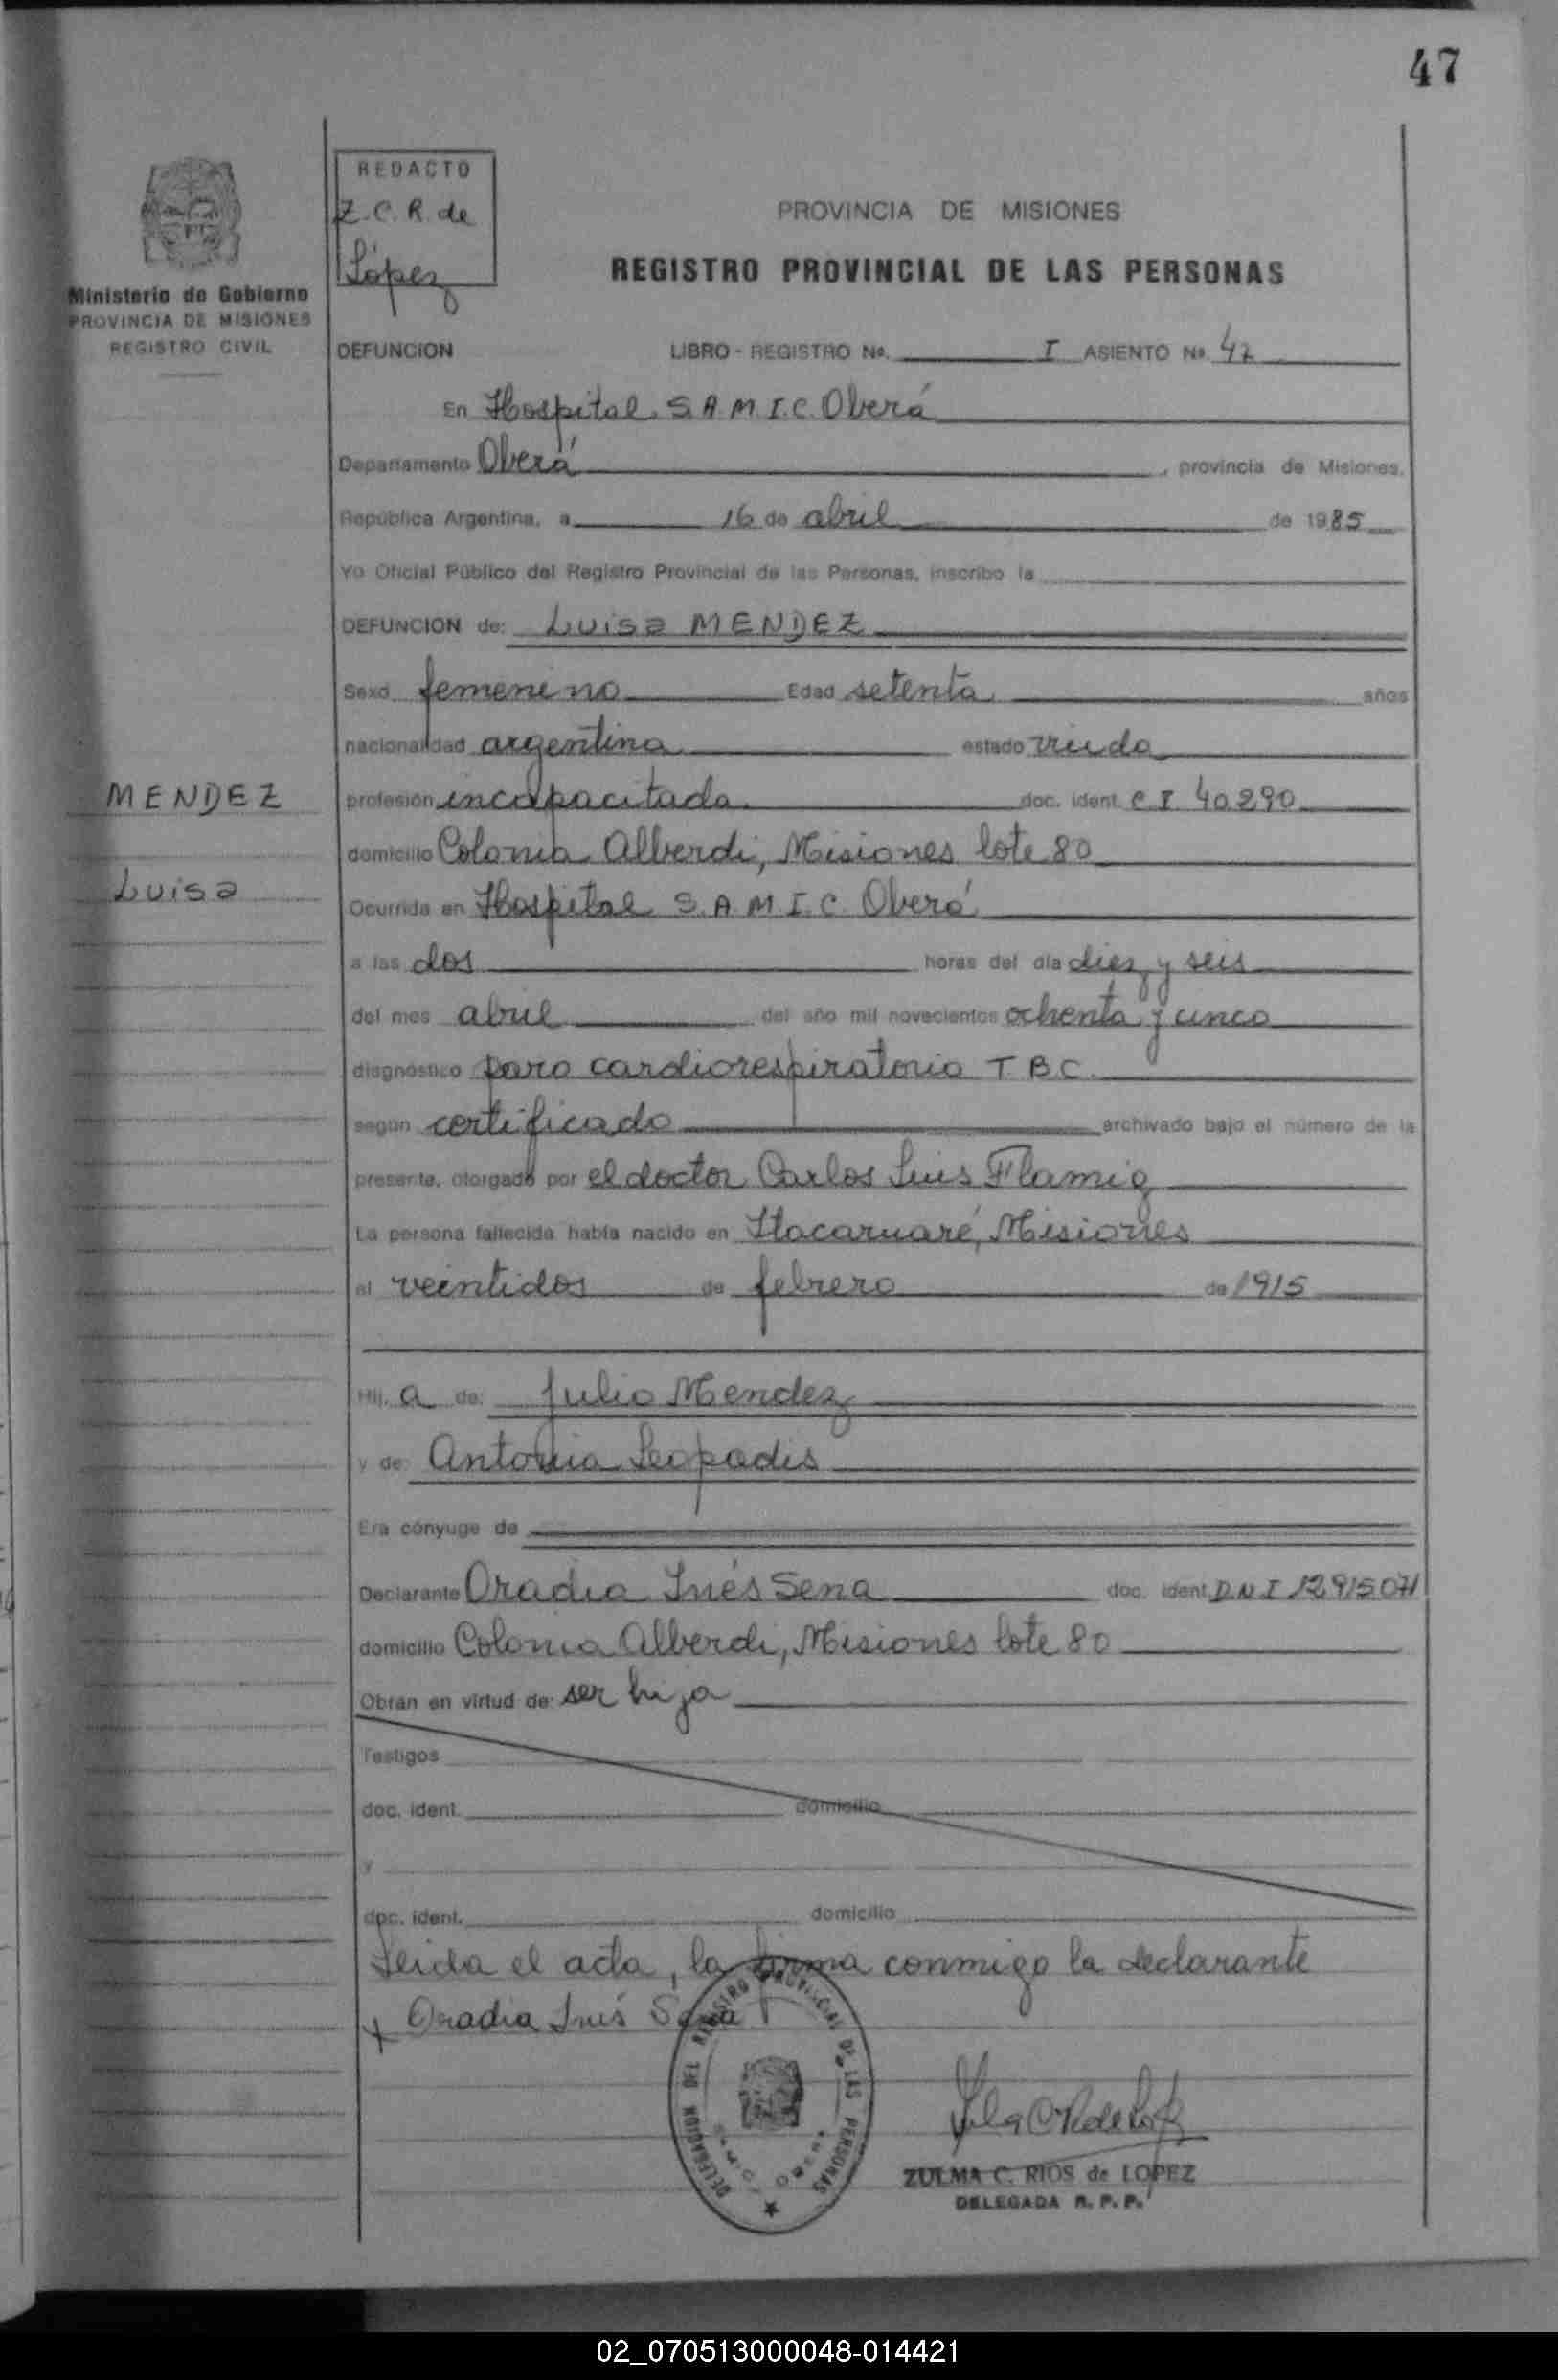 47
REDACTO
Z. C. R. de
López
PROVINCIA DE MISIONES
REGISTRO PROVINCIAL DE LAS PERSONAS
Ministerio de Gobierno
PROVINCIA DE MISIONES
REGISTRO CIVIL
DEFUNCION LIBRO - REGISTRO No. I ASIENTO No. 47
En Hospital S.A.M.I.C. Oberá
Departamento Oberá, provincia de Misiones.
República Argentina, a 16 de abril de 1985
Yo Oficial Público del Registro Provincial de las Personas, inscribo la
DEFUNCION de: Luisa MENDEZ
Sexo femenino Edad setenta años
nacionalidad argentina estado viuda
MENDEZ
profesión incapacitada doc. ident. C I 40.290
domicilio Colonia Alberdi, Misiones lote 80
Luisa
Ocurrida en Hospital S.A.M.I.C. Oberá
a las dos horas del día diez y seis
del mes abril del año mil novecientos ochenta y cinco
diagnóstico paro cardiorespiratorio T B C.
según certificado archivado bajo el número de la
presente, otorgado por el doctor Carlos Luis Flamig
La persona fallecida había nacido en Itacaruaré, Misiones
el veintidos de febrero de 1915
Hij a de: Julio Mendez
y de: Antonia Leopadis
Era cónyuge de
Declarante Oradia Inés Sena doc. ident. D.N.I 12915071
domicilio Colonia Alberdi, Misiones lote 80
Obran en virtud de: ser hija
Testigos
doc. ident. domicilio
y
doc. ident. domicilio
Leida el acta, la firma conmigo la declarante
x Oradia Inés Sena
DELEGACION DEL REGISTRO PROVINCIAL DE LAS PERSONAS
ZULMA C. RIOS de LOPEZ
DELEGADA R. P. P.
02_070513000048-014421